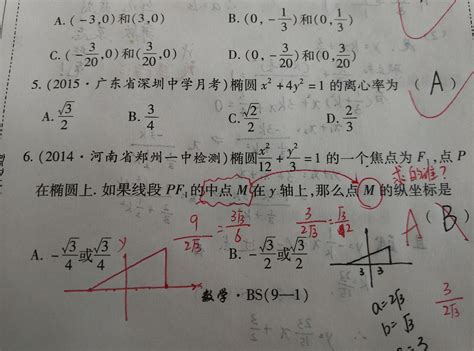 A. (-3,0)和(3,0)
B. (0,-1/3)和(0,1/3)
C. (-3/20,0)和(3/20,0)
D. (0,-3/20)和(0,3/20)
5. (2015·广东省深圳中学月考)椭圆x²+4y²=1的离心率为 (A)
A. √3/2
B. 3/4
C. √2/2
D. 2/3
6. (2014·河南省郑州一中检测)椭圆x²/12+y²/3=1的一个焦点为F₁,点P
求的谁?
在椭圆上.如果线段PF₁的中点M在y轴上,那么点M的纵坐标是
A (B)
9/2√3 = 3√3/6
3/2√3 = √3/2
A. -√3/4或√3/4
B. -√3/2或√3/2
y
3 3
数学·BS(9—1)
a=2√3
b=√3
=3
3/2√3